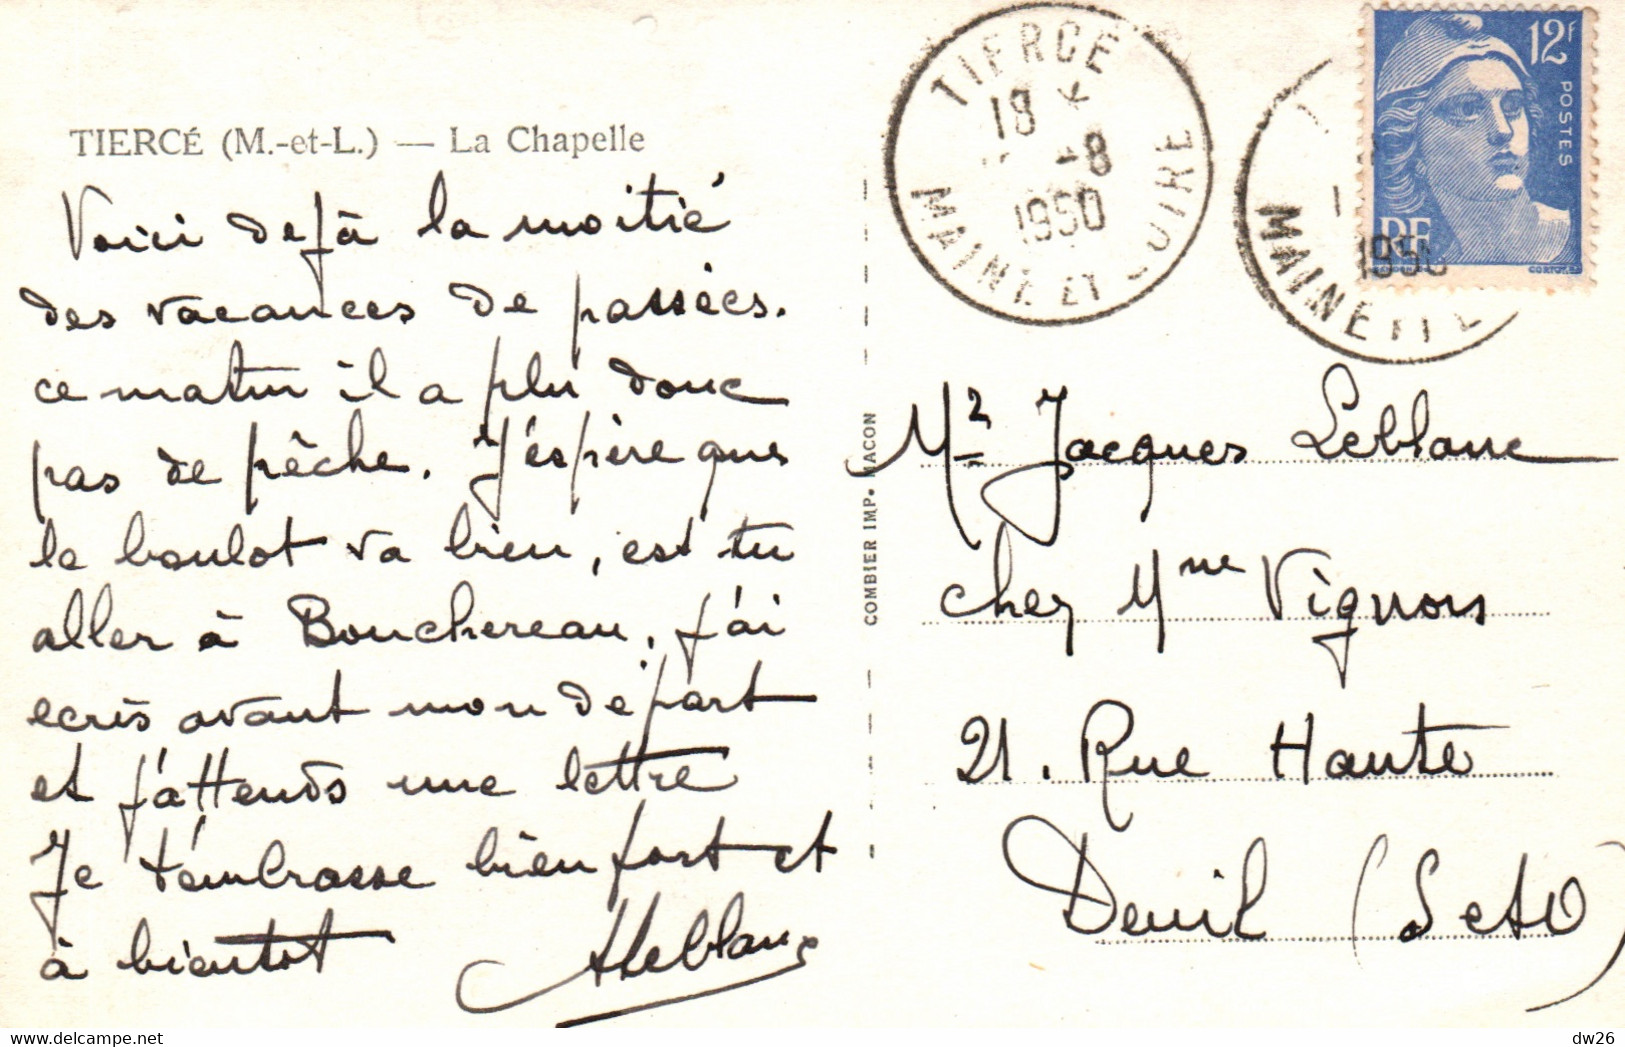 TIERCÉ (M.-et-L.) — La Chapelle
Voici dejà la moitié
des vacances de passées.
ce matin il a plu donc
pas de pêche. J'éspère que
le boulot va bien, est tu
aller à Bouchereau, j'ai
ecris avant mon départ
et j'attends une lettre
Je t'embrasse bien fort et
à bientot
Leblanc
COMBIER IMP. MACON
TIERCÉ
18 *
-8
1950
MAINE ET LOIRE
1950
MAINE ET L
12F
POSTES
RF
Mr Jacques Leblanc
chez Mme Vignors
21. Rue Haute
Deuil (S et O)
dw26